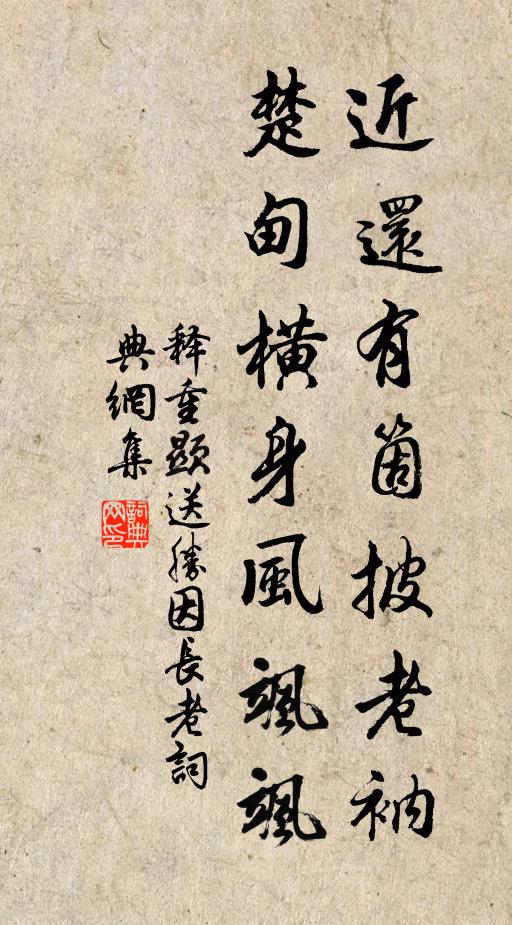 近還有箇披老衲
楚甸橫身風颯颯
释重顯送勝因長老詞
典網集
詞典網印